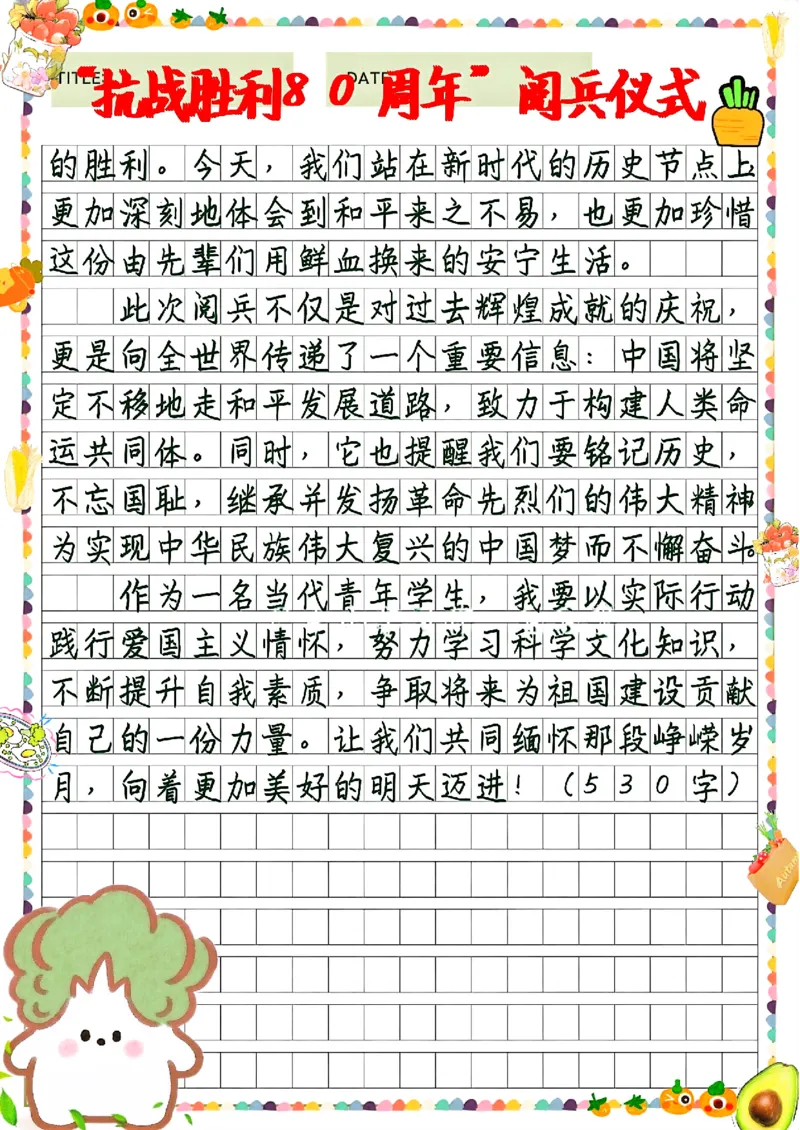 TITLE:
DATE
“抗战胜利80周年”阅兵仪式
的胜利。今天，我们站在新时代的历史节点上
更加深刻地体会到和平来之不易，也更加珍惜
这份由先辈们用鲜血换来的安宁生活。
此次阅兵不仅是对过去辉煌成就的庆祝，
更是向全世界传递了一个重要信息：中国将坚
定不移地走和平发展道路，致力于构建人类命
运共同体。同时，它也提醒我们要铭记历史，
不忘国耻，继承并发扬革命先烈们的伟大精神
为实现中华民族伟大复兴的中国梦而不懈奋斗。
作为一名当代青年学生，我要以实际行动
践行爱国主义情怀，努力学习科学文化知识，
不断提升自我素质，争取将来为祖国建设贡献
自己的一份力量。让我们共同缅怀那段峥嵘岁
月，向着更加美好的明天迈进！（530字）
Autumn